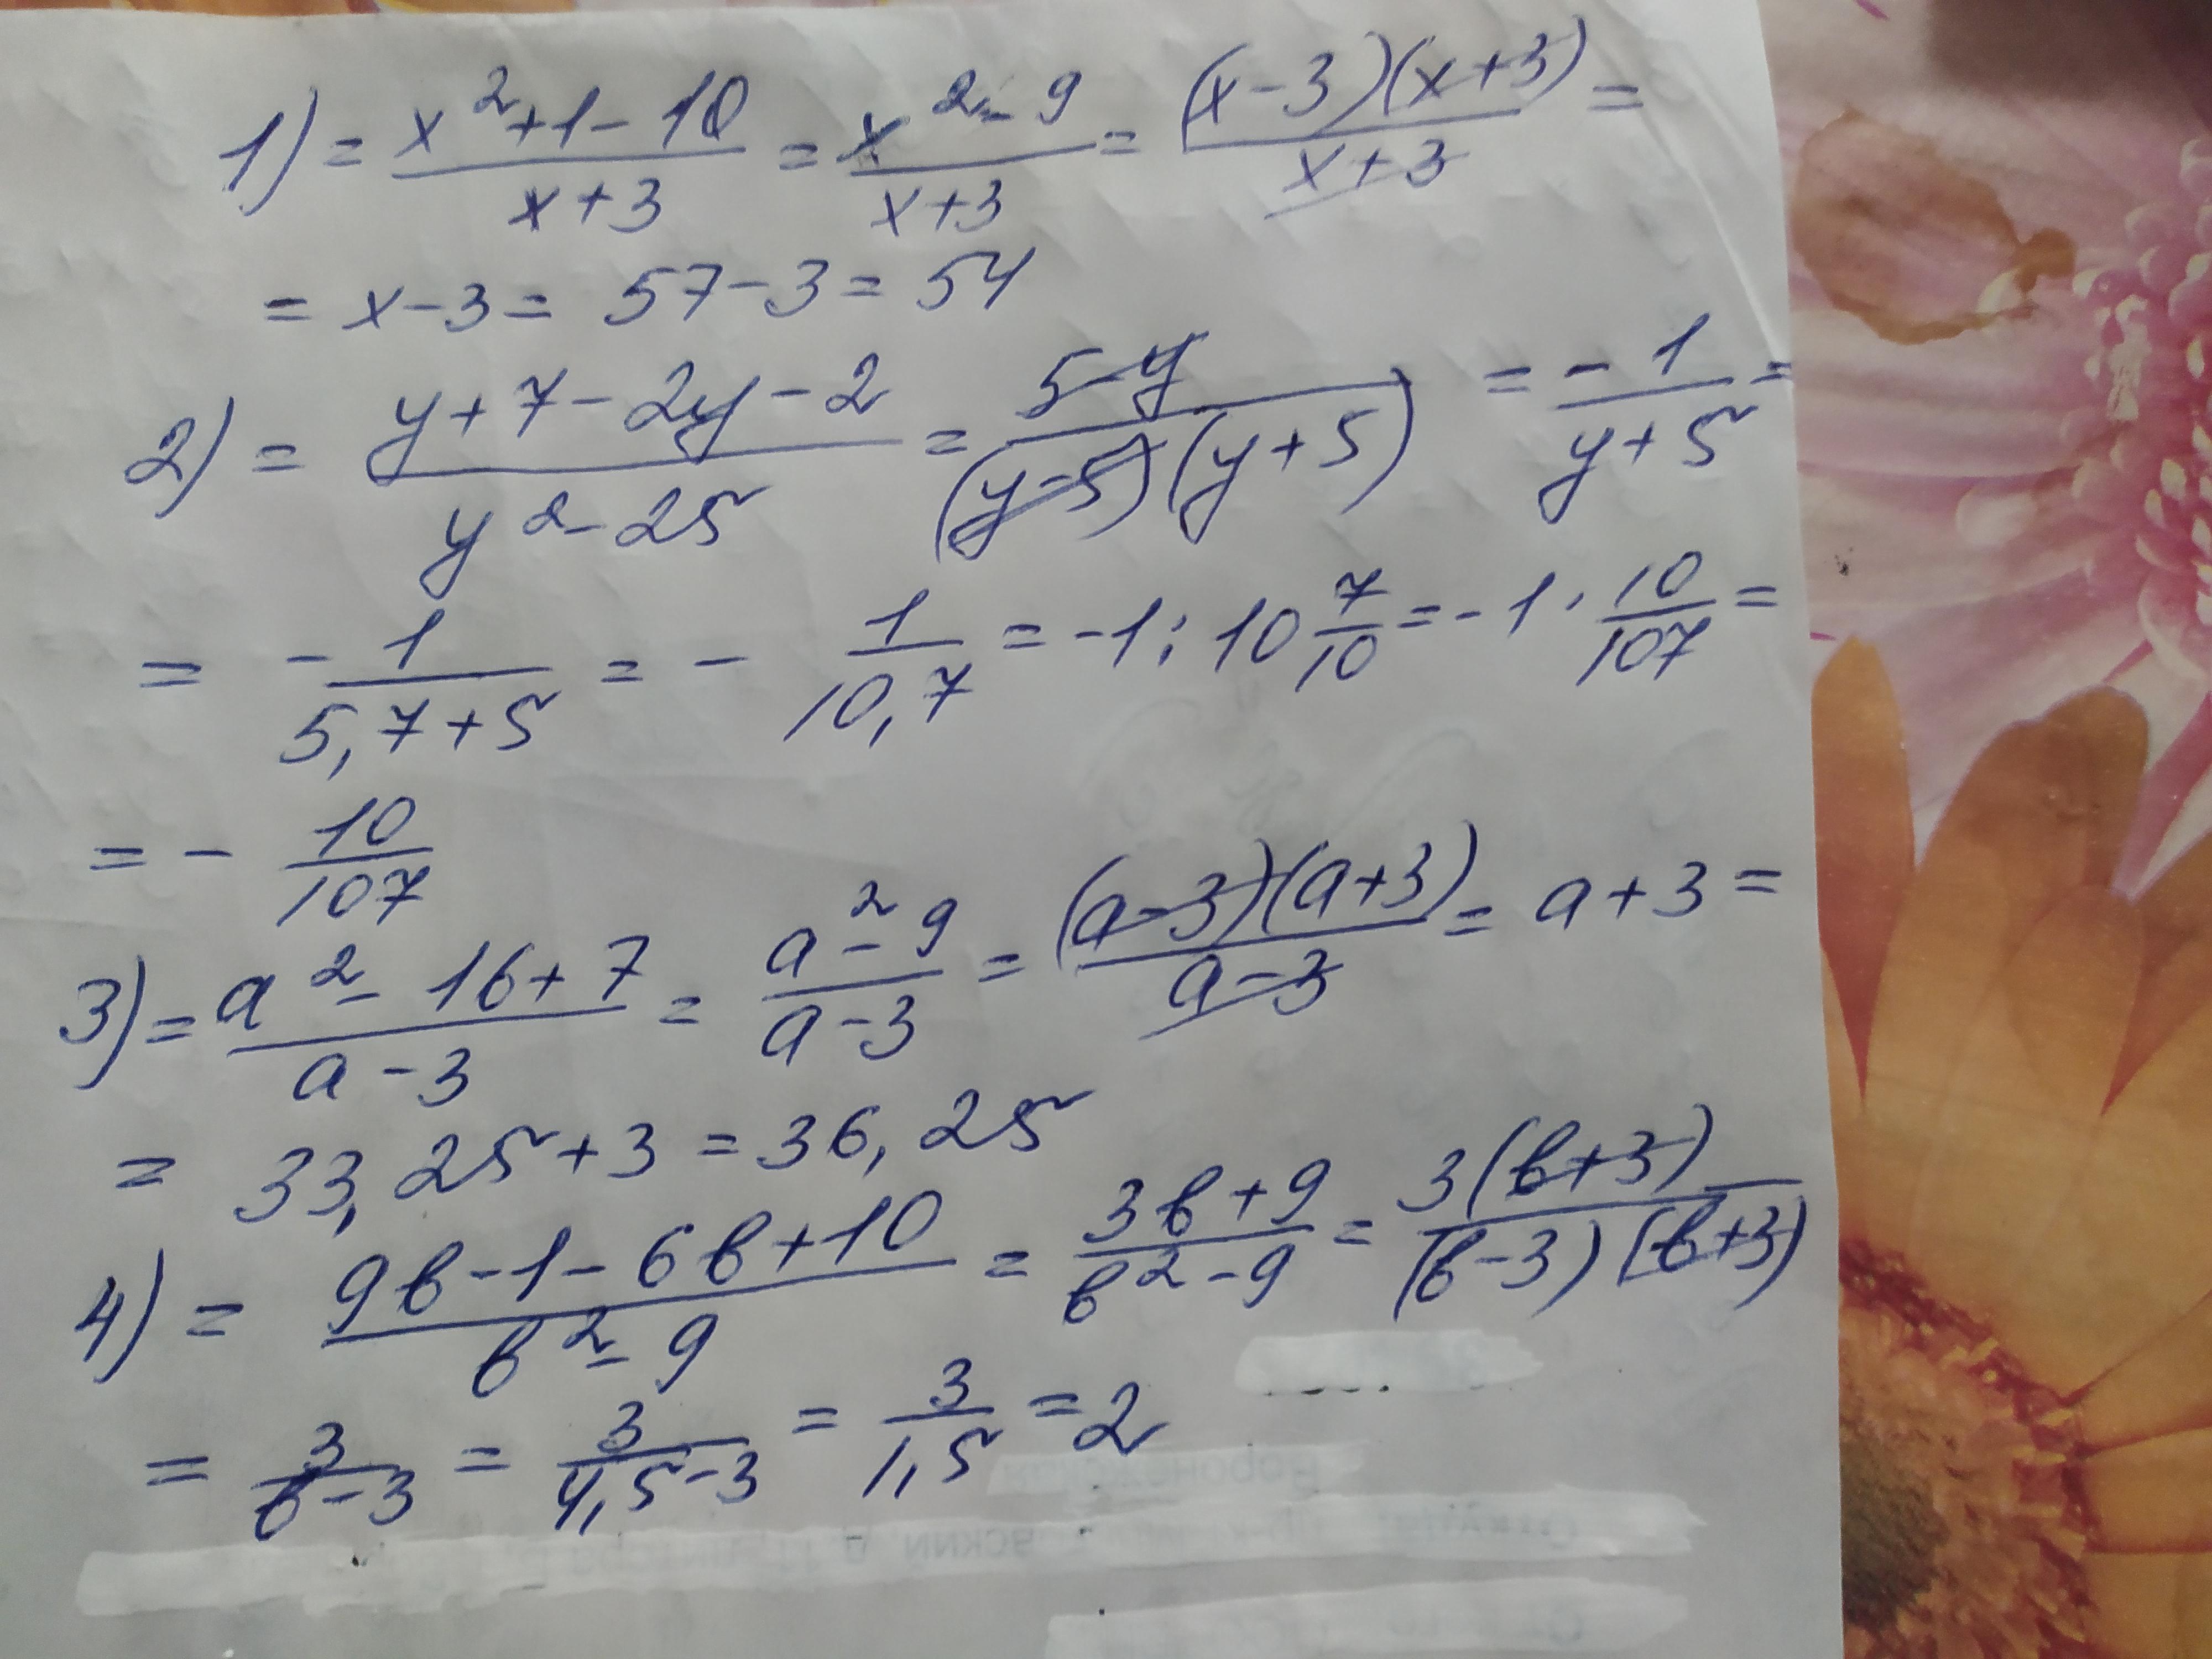 1) = (x²+1-10)/(x+3) = (x²-9)/(x+3) = ((x-3)(x+3))/(x+3) =
= x-3 = 57-3 = 54
2) = (y+7-2y-2)/(y²-25) = (5-y)/((y-5)(y+5)) = -1/(y+5) =
= -1/(5,7+5) = - 1/(10,7) = -1 : 10 7/10 = -1 · 10/107 =
= - 10/107
3) = (a²-16+7)/(a-3) = (a²-9)/(a-3) = ((a-3)(a+3))/(a-3) = a+3 =
= 33,25+3 = 36,25
4) = (9в-1-6в+10)/(в²-9) = (3в+9)/(в²-9) = (3(в+3))/((в-3)(в+3))
= 3/(в-3) = 3/(4,5-3) = 3/(1,5) = 2